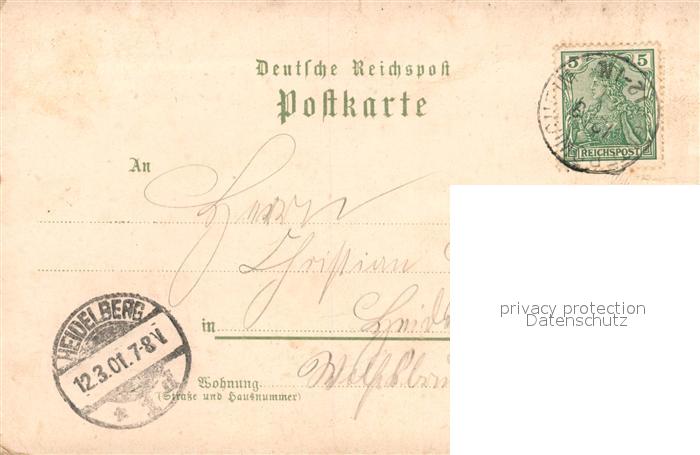 Deutsche Reichspost
Postkarte
5 5
REICHSPOST
An
Herrn
Christian
in Heidel
Wohnung Wolfsbru
(Straße und Hausnummer)
HEIDELBERG
12.3.01.7-8V
privacy protection
Datenschutz